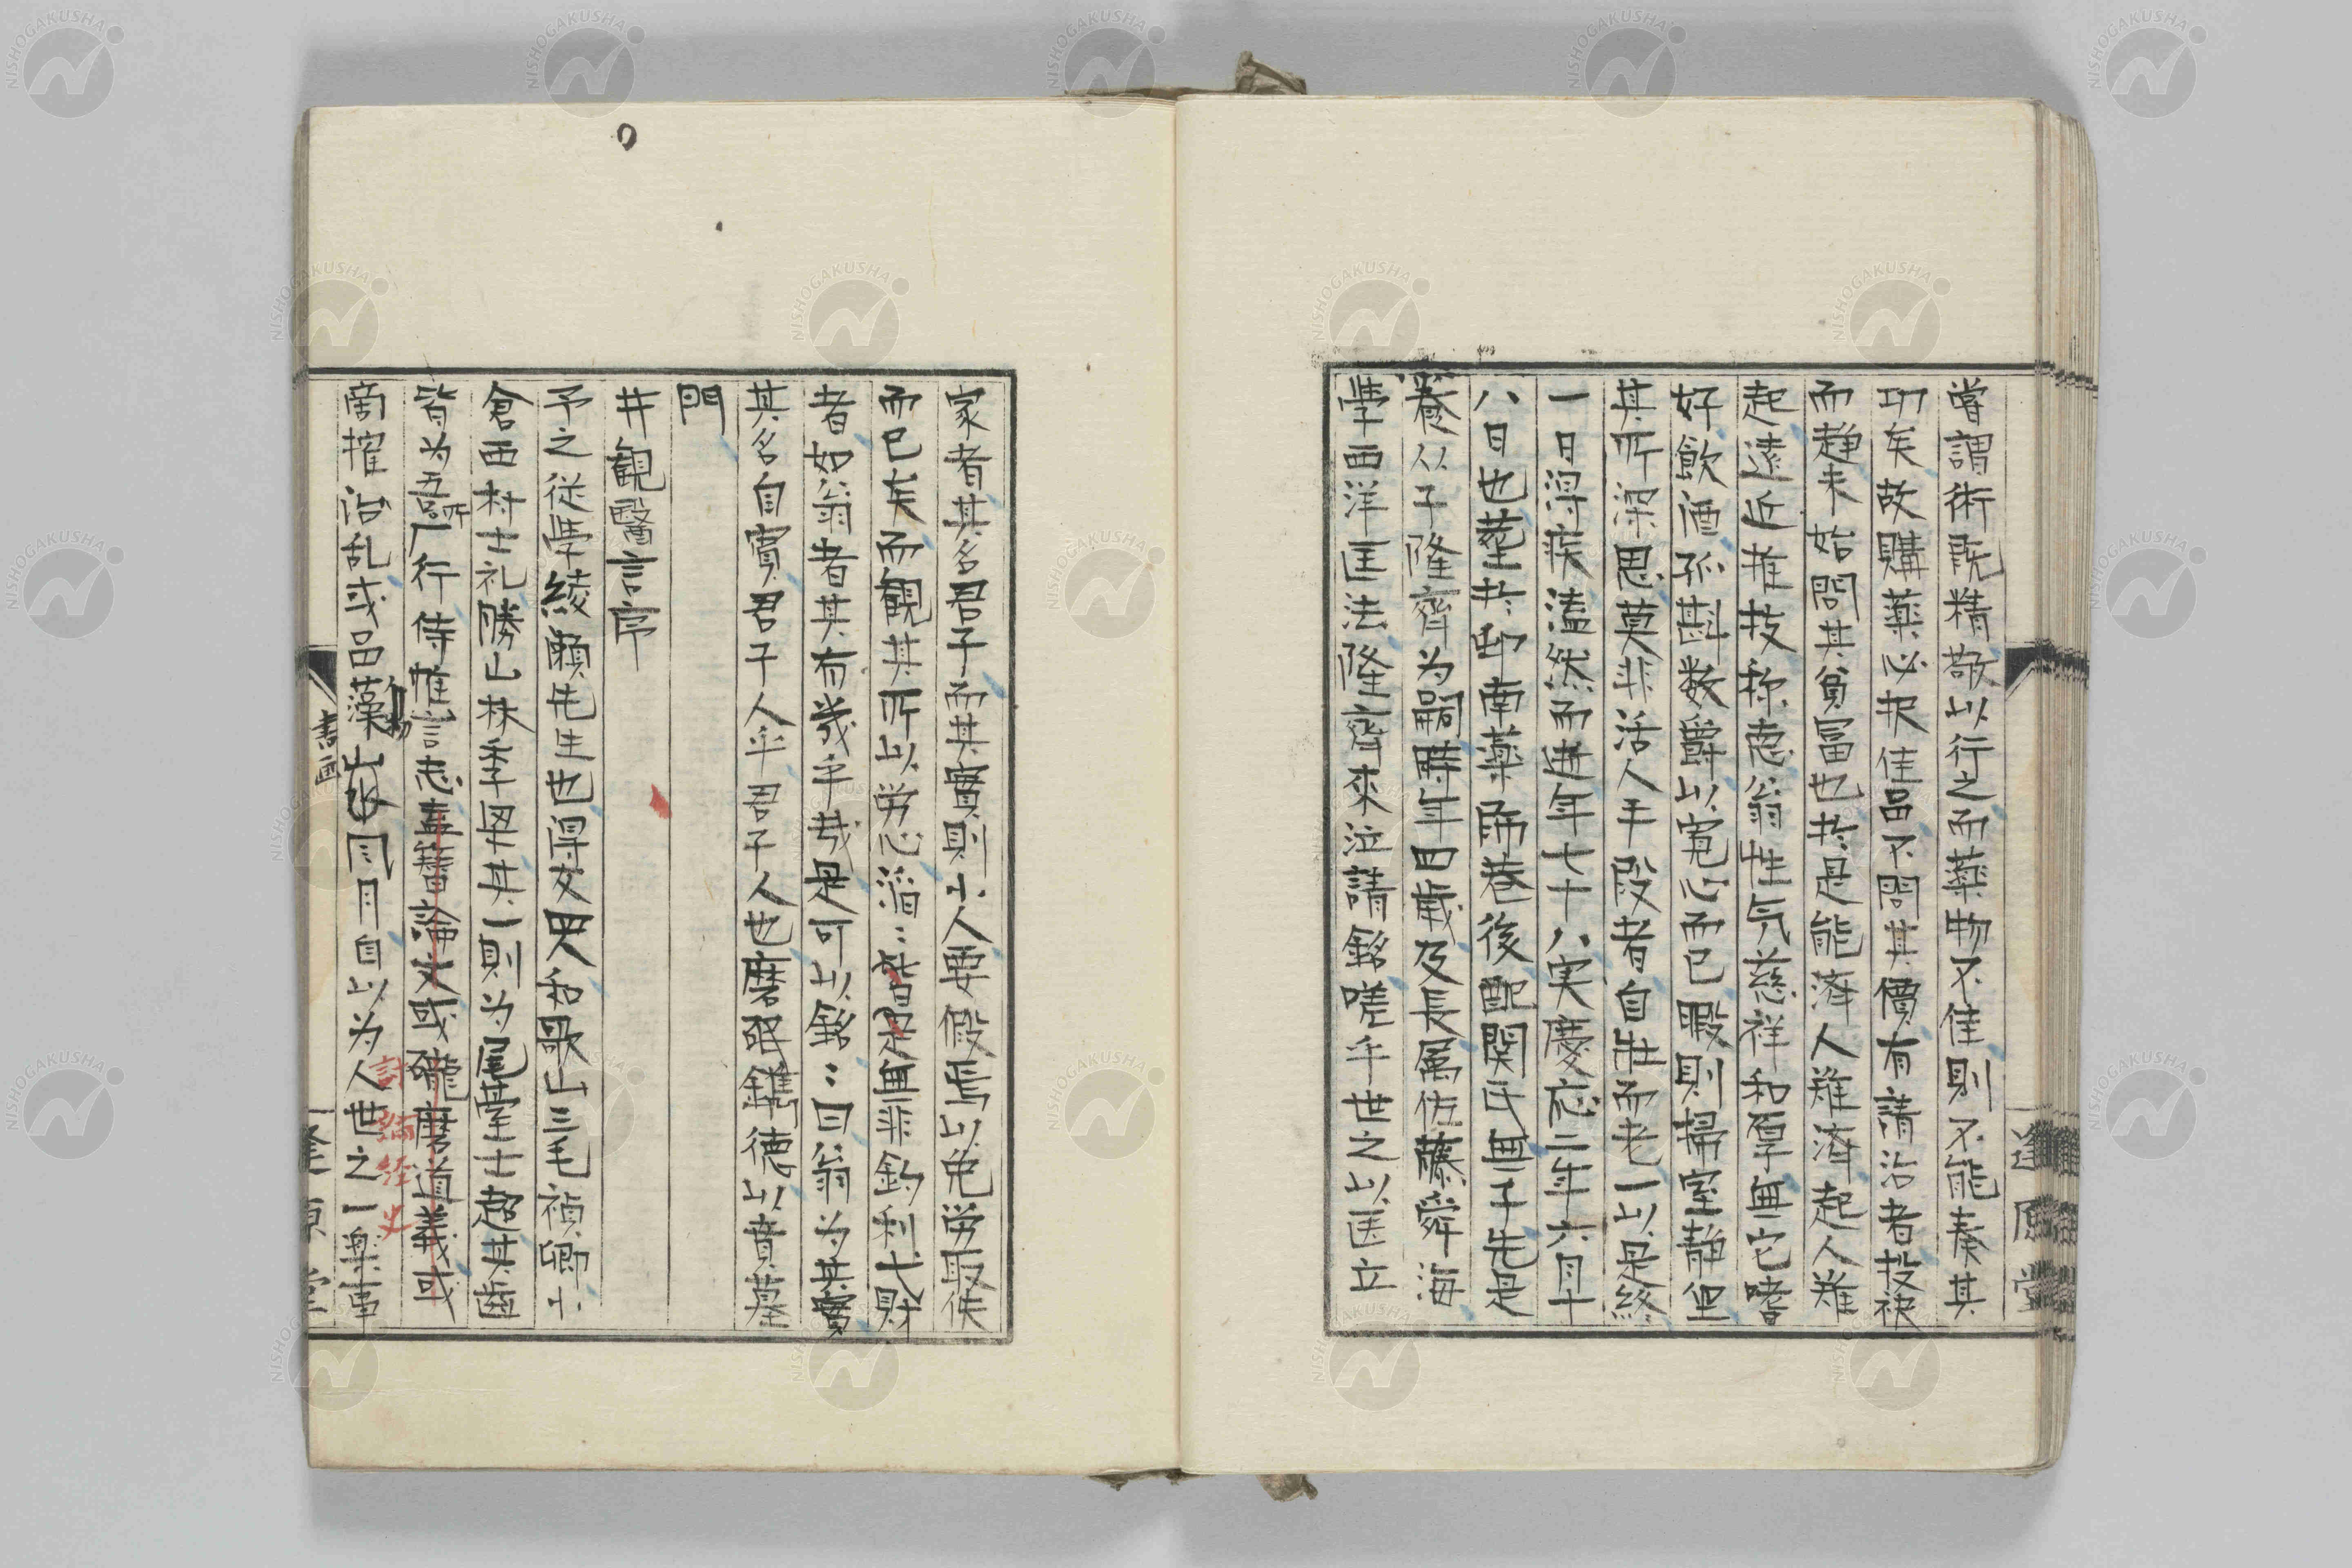 嘗謂術既精敬以行之而藥物不佳則不能奏其
功矣故購藥必択佳品不問其價有請治者投袂
而趨未始問其貧富也於是能濟人難濟起人難
起遠近推技称悳翁性気慈祥和厚無它嗜
好飲酒不斟数爵以寛心而已暇則掃室静坐
其所深思莫非活人手段者自壮而老一以是終
一日淂疾溘然而逝年七十八実慶応二年六月十
八日也葬于卭南藥師巷後配関氏無子先是
養以子隆齊为嗣時年四歳及長属佐藤舜海
學西洋医法隆齊來泣請銘嗟乎世之以医立
家者其名君子而其實則小人要假焉以免労取佚
而已矣而観其所以労心滔:皆是無非釣利弋財
者如翁者其有幾乎哉是可以銘:曰翁为其實
其名自實君子人乎君子人也磨珉鐫德以賁墓
門
井観醫言序
予之従學綾瀬先生也淂友四人和歌山三毛禎卿小
倉西村士礼勝山林季畏其一則为尾臺士超其齒
皆为吾所行侍帷言志盍簪論文或礲磨道義或
商搉治乱或品藻書画風月自以为人世之一樂事
討論経史
逢原堂